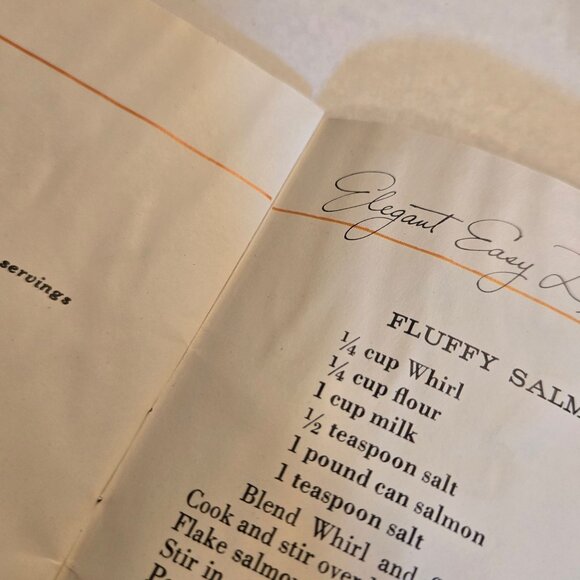 servings
Elegant Easy
FLUFFY
¼ cup Whirl
¼ cup flour
1 cup milk
½ teaspoon salt
1 pound can salmon
1 teaspoon salt
Blend Whirl and
Cook and stir over
Flake salmon
Stir in